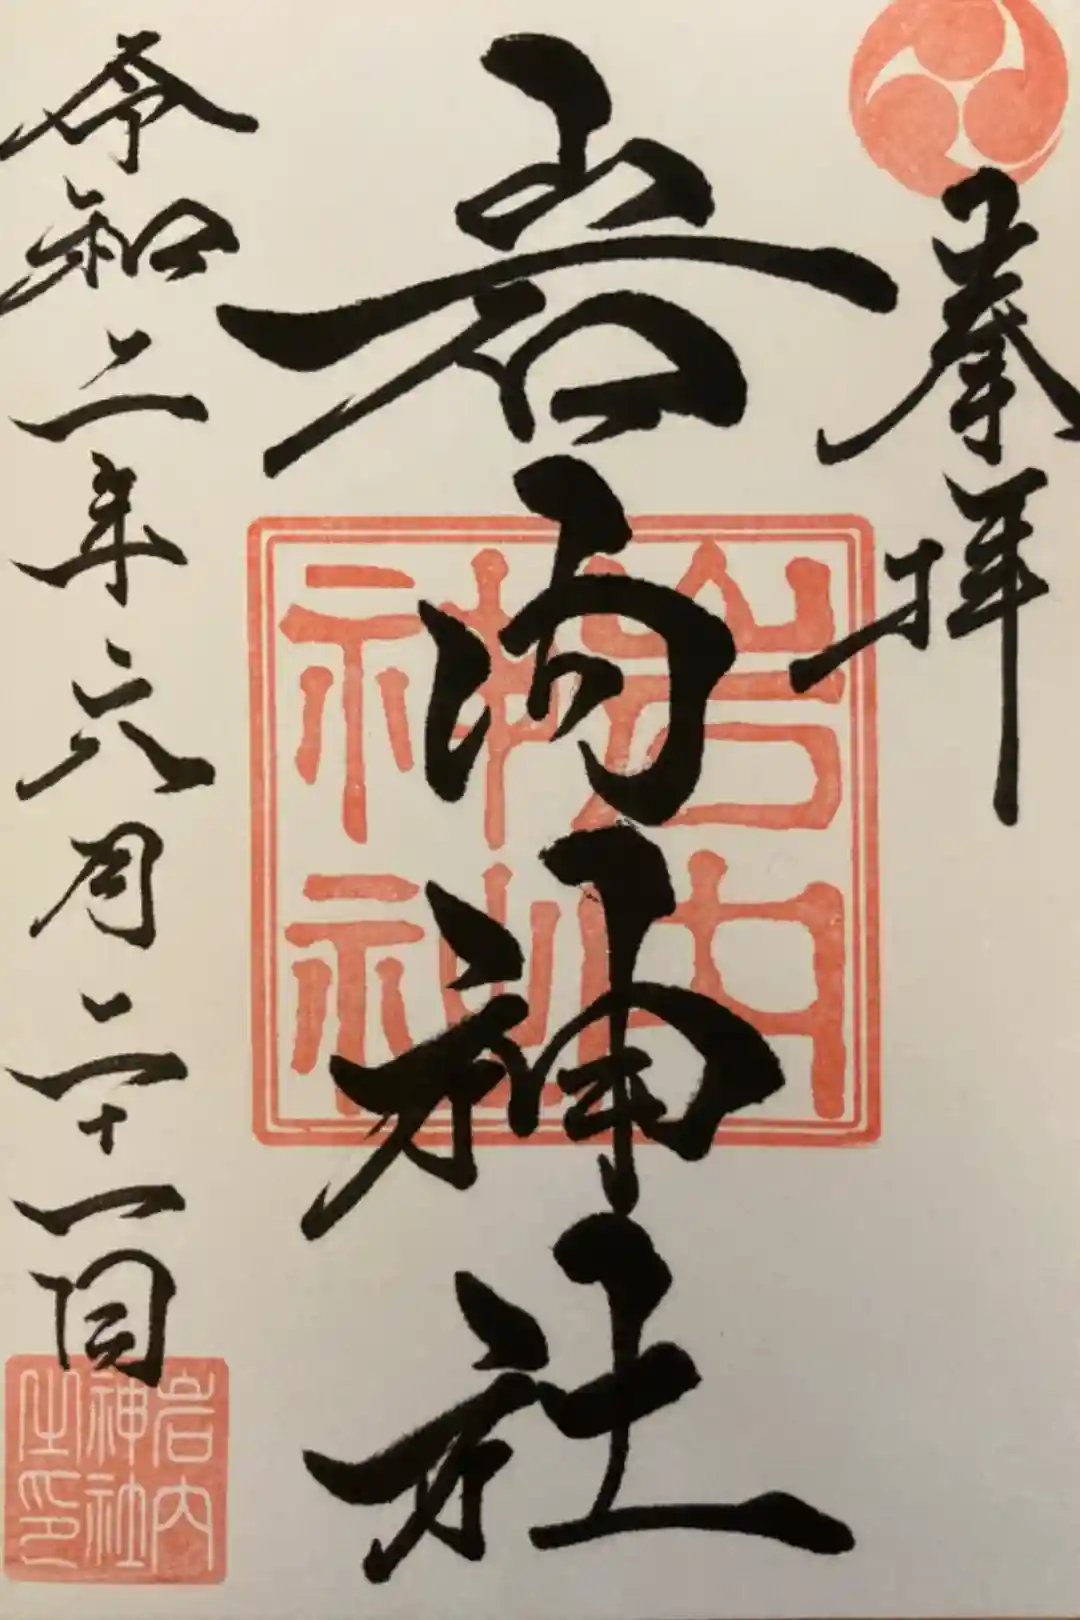 奉拝
岩内神社
岩内
神社
令和二年六月二十一日
岩内
神社
之印